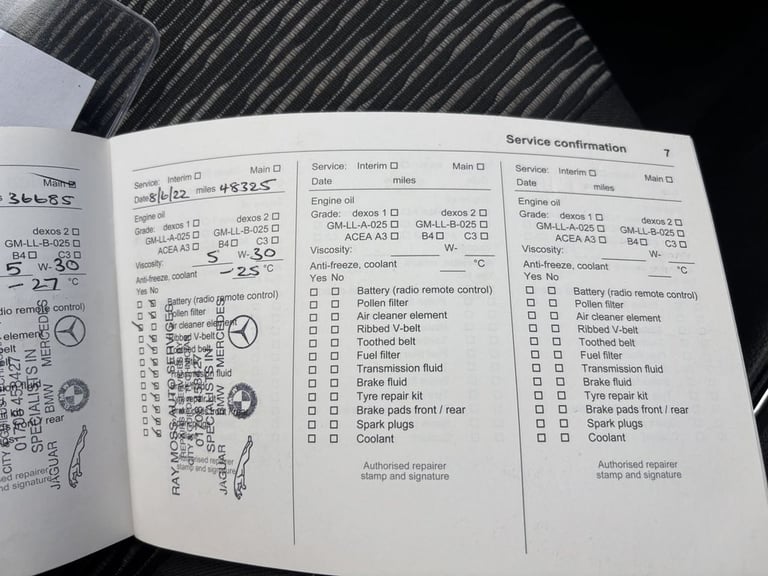 Service confirmation 7
Main
36685
dexos 2
GM-LL-B-025
B4 C3
5 W-30
-27 °C
dio remote control)
element
belt
SPECIALISTS IN
BMW MERCEDES
JAGUAR
Service: Interim Main
Date 8/6/22 miles 48325
Engine oil
Grade: dexos 1 dexos 2
GM-LL-A-025 GM-LL-B-025
ACEA A3 B4 C3
Viscosity: 5 W-30
Anti-freeze, coolant -25 °C
Yes No
Battery (radio remote control)
Pollen filter
Air cleaner element
Ribbed V-belt
Toothed belt
RAY MOSS AUTO SERVICES
SPECIALISTS IN
BMW MERCEDES
JAGUAR
Authorised repairer
stamp and signature
Service: Interim Main
Date miles
Engine oil
Grade: dexos 1 dexos 2
GM-LL-A-025 GM-LL-B-025
ACEA A3 B4 C3
Viscosity: W-
Anti-freeze, coolant °C
Yes No
Battery (radio remote control)
Pollen filter
Air cleaner element
Ribbed V-belt
Toothed belt
Fuel filter
Transmission fluid
Brake fluid
Tyre repair kit
Brake pads front / rear
Spark plugs
Coolant
Authorised repairer
stamp and signature
Service: Interim Main
Date miles
Engine oil
Grade: dexos 1 dexos 2
GM-LL-A-025 GM-LL-B-025
ACEA A3 B4 C3
Viscosity: W-
Anti-freeze, coolant °C
Yes No
Battery (radio remote control)
Pollen filter
Air cleaner element
Ribbed V-belt
Toothed belt
Fuel filter
Transmission fluid
Brake fluid
Tyre repair kit
Brake pads front / rear
Spark plugs
Coolant
Authorised repairer
stamp and signature